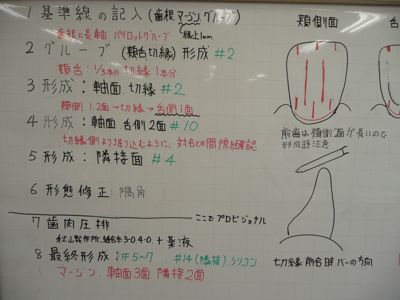 1 基準線の記入(歯根マージン,グルーブ)
縁上1mm
歯根に長軸 パイロットグルーブ
2 グルーブ(頬舌切縁)形成 #2
頬舌:1/3 切縁1本分
3 形成:軸面 切縁 #2
頬側1.2面→切縁→舌側1面
4 形成:軸面 舌側2面 #10
切縁側より堀り込むように、対合との間隙確認
5 形成:隣接面 #4
6 形態修正:隅角
ここでプロビジョナル
7 歯肉圧排
秋山製作所,縫合糸3-0,4-0 + 薬液
8 最終形成:#5~7 #14(隣接)シリコン
マージン、軸面3面 隣接2面
頬側面
舌
前歯は頬側2面が長いので
形成時注意
切縁 形合時 バーの方向